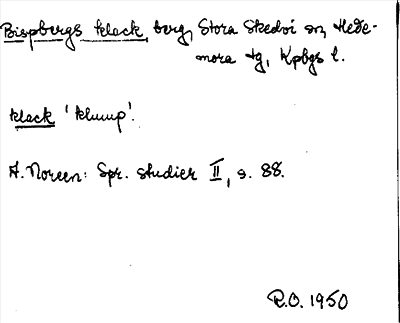 Bispbergs klack, berg, Stora Skedvi sn, Hede-
mora tg, Kpbgs l.
klack 'klump'.
A. Noreen: Spr. studier II, s. 88.
R.O. 1950